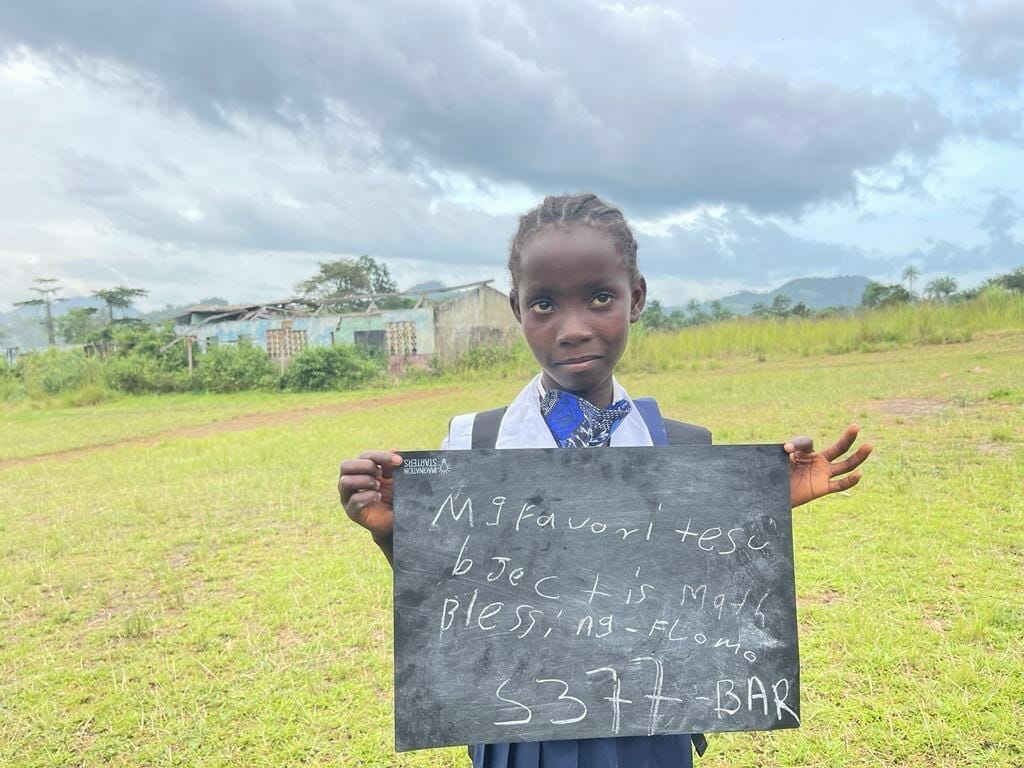 IMAGINATION
STARTERS
My Favori tesu
bJect is Math
Blessing-FLomo
S377-BAR